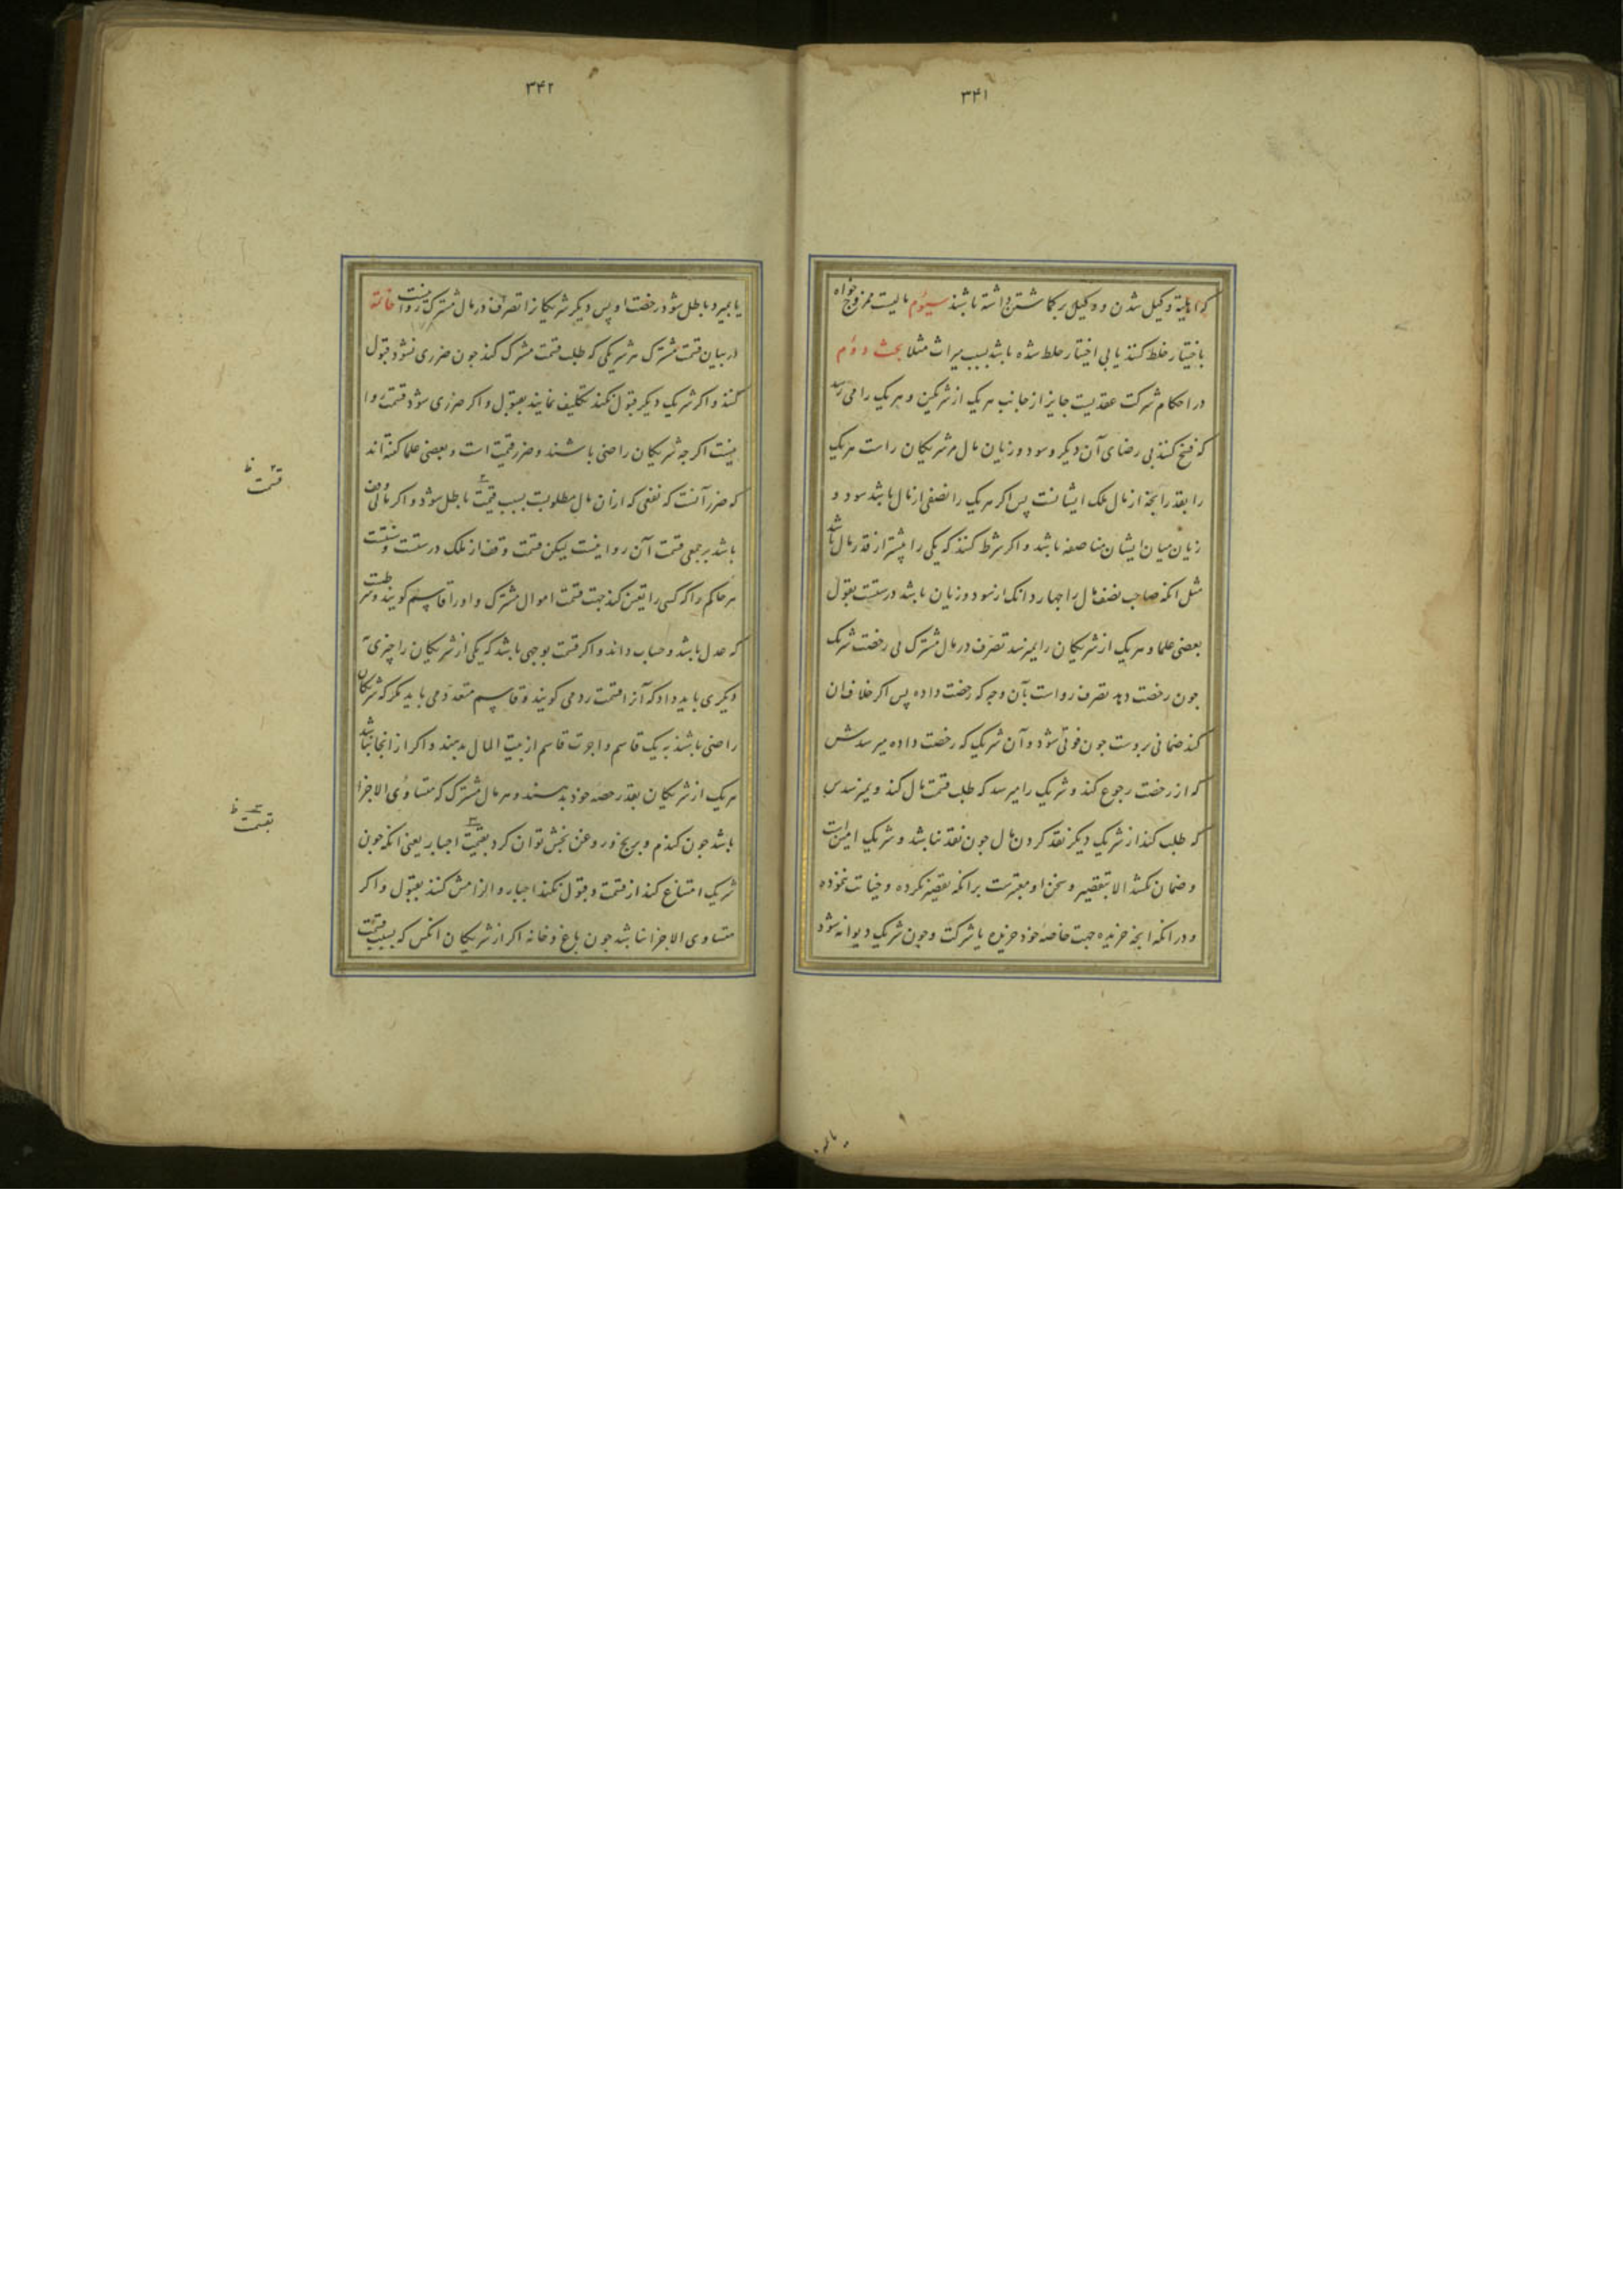 ۳۴۱
که اهلیة وکیل شدن و وکیل برکاشتن داشته باشند سیوم مالیست ممزوج خواه
باختیار خلط کنند یا بی اختیار خلط شده باشد بسبب میراث مثلا بحث دوم
در احکام شرکت عقدیست جایز از جانب هر یک از شرکین و هر یک را می رسد
که فسخ کنند بی رضای آن دیگر و سود و زیان مال مر شریکان راست هر یک
را بقدر انجه از مال ملک ایشانست پس اکر هر یک را نصفی از مال باشد سود و
زیان میان ایشان مناصفه باشد و اکر شرط کنند که یکی را بیشتر از قدر مال باشد
مثل انکه صاحب نصف مال را جهار دانک از سود و زیان باشد درستست بقول
بعضی علما و هر یک از شریکان را نمیرسد تصرف در مال مشترک بی رخصت شریک
جون رخصت دهد تصرف رواست بآن وجه که رخصت داده پس اکر خلاف ان
کند ضمانی بروست جون فوتی شود و آن شریک که رخصت داده میرسدش
که از رخصت رجوع کند و شریک را میرسد که طلب قسمت مال کند و نمیرسدس
که طلب کند از شریک دیکر نقد کردن مال جون نقد نباشد و شریک امین است
و ضمان نکشد الا بتقصیر و سخن او معتبرست برانکه تقصیر نکرده و خیانت ننموده
و در انکه انجه خریده جهت خاصه خود خریده یا شرکت و جون شریک دیوانه شود
یا بمیرد
۳۴۲
یا بمیرد باطل شود رخصت او پس دیکر شریکانرا تصرف در مال مشترک روا نیست خاتمه
در بیان قسمت مشترک هر شریکی که طلب قسمت مشترک کند جون ضرری نشود قبول
کنند و اکر شریک دیکر قبول نکند تکلیف نمایند بقبول و اکر ضرری شود قسمت روا
نیست اکر جه شریکان راضی باشند و ضرر قیمت است و بعضی علما کفته اند
که ضرر آنست که نفعی که ازان مال مطلوبست بسبب قیمت باطل شود و اکر مالی وقف
باشد بر جمعی قسمت آن روا نیست لیکن قسمت وقف از ملک درستست و سنتست
مر حاکم را که کسی را تعیین کند جهت قسمت اموال مشترک و اورا قاسم کویند و شرطست
که عدل باشد و حساب داند و اکر قسمت بوجهی باشد که یکی از شریکان را چیزی
دیکری باید داد که آنرا قسمت رد می کویند و قاسم متعدد می باید مکر که شریکان
راضی باشند به یک قاسم و اجرت قاسم از بیت المال بدهند و اکر از انجا نباشد
هر یک از شریکان بقدر حصه خود بدهند و هر مال مشترک که متساوی الاجزا
باشد جون کندم و برنج و روغن بخش توان کرد بقیمت اجبار یعنی انکه جون
شریک امتناع کند از قسمت و قبول نکند اجبار و الزامش کنند بقبول و اکر
متساوی الاجزا نباشد جون باغ و خانه اکر از شریکان انکس که بسبب قسمت
قسمت ظ
بقسمت ظ